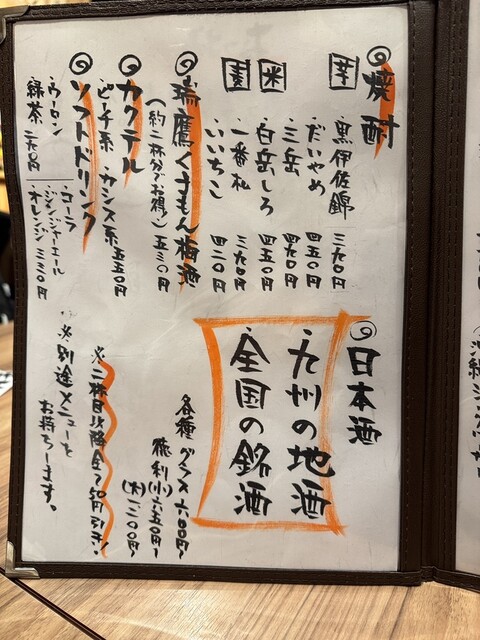 焼酎
芋
・黒伊佐錦 三九〇円
・だいやめ 四五〇円
・三岳 四九〇円
米
・白岳しろ 四五〇円
麦
・一番札 三九〇円
・いいちこ 四二〇円
瑞鷹くまもん梅酒
(約二杯分でお得!) 五三〇円
カクテル
・ピーチ系 ・カシス系 五五〇円
ソフトドリンク
・コーラ
・ジンジャーエール
・オレンジ 三三〇円
・ウーロン
・緑茶 二九〇円
日本酒
・九州の地酒
・全国の銘酒
各種 グラス 六〇〇円〜
徳利(小) 六五〇円〜
(大) 一二〇〇円〜
※二杯目以降全て50円引き!
※別途メニューを
お持ちします。